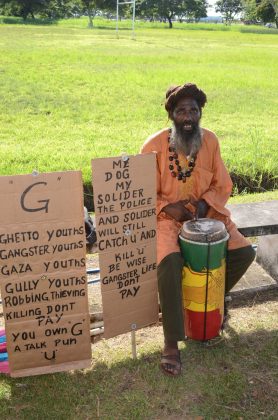 "G"
GHETTO YOUTHS
GANGSTER YOUTHS
GAZA YOUTHS
GULLY" YOUTHS
ROBBING, THIEVING
KILLING DONT
PAY
YOU OWN G
A TALK PUN
U
MI
DOG
MY
SOLIDER
THE POLICE
AND SOLIDER
WILL STILL
CATCH U AND
KILL U
BE WISE
GANGSTER LIFE
DON'T
PAY